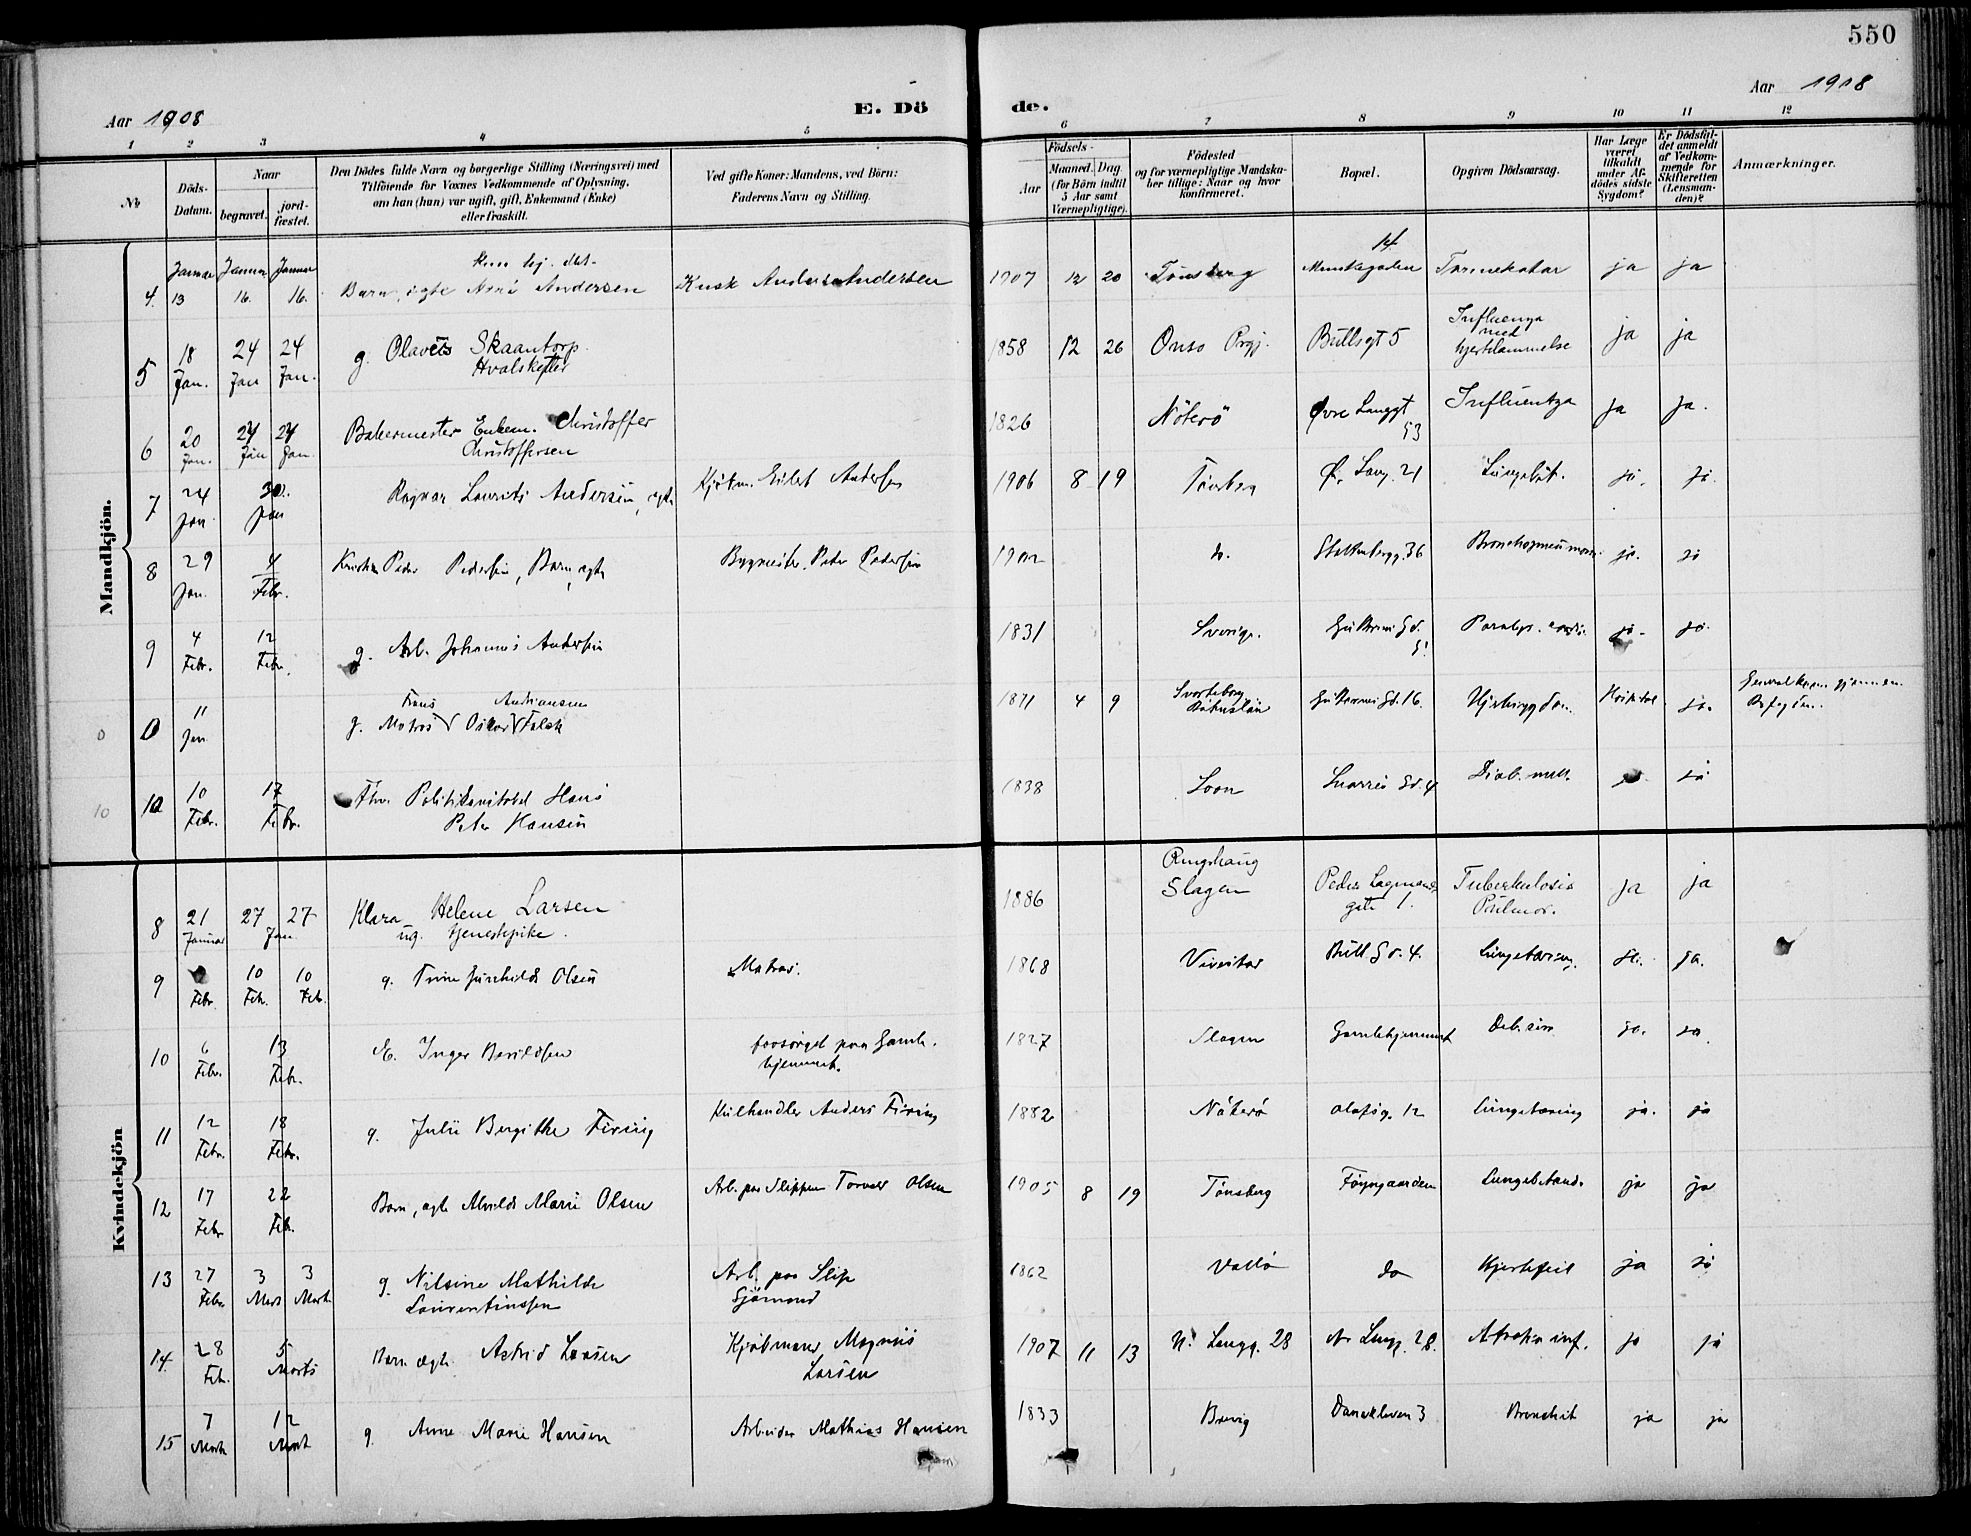 550
Aar 1908
E. Dö
de.
Aar 1908
1 2 3 4 5 6 7 8 9 10 11 12
No
Döds-Datum.
Naar
begravet.
jord-fæstet.
Den Dödes fulde Navn og borgerlige Stilling (Næringsvei) med
Tilföiende for Voxnes Vedkommende af Oplysning,
om han (hun) var ugift, gift, Enkemand (Enke)
eller fraskilt.
Ved gifte Koner: Mandens, ved Börn:
Faderens Navn og Stilling.
Födsels-
Aar
Maaned. Dag.
(for Börn indtil
5 Aar samt
Værnepligtige).
Födested
og for værnepligtige Mandska-
ber tillige: Naar og hvor
konfirmeret.
Bopæl.
Opgiven Dödsaarsag.
Har Læge
været
tilkaldt
under Af-
dödes sidste
Sygdom?
Er Dödsfal-
det anmeldt
af Vedkom-
mende for
Skifteretten
(Lensman-
den)?
Anmærkninger.
Mandkjön.
4. Januar 13 Januar 16. Januar 16. Barn, ægte Andersen Kusk Anders Andersen 1907 12 20 Tönsberg 14 Tarmekatar ja ja
5 18 Jan. 24 Jan 24 Jan. g. Olavus Skaantorp 1858 12 26 Onsö Prgj. Bullsgt 5 Influenza med hjertelammelse ja ja
6 20 Jan. 24 Jan 24 Jan. Bakermester Enkem. Christoffer
Christoffersen 1826 Nöterö Øvre Langgt 53 Influentza ja ja.
7 24 Jan. 30. Jan Ragnar Laurits Andersen, ægte Kjøbm. Eilert Andersen 1906 8 19 Tønsberg Ø. Lang. 21 Lungebet. ja. ja.
8 29 Jan. 4 Febr. Kristian Peder Pedersen, Barn, ægte Bygmester Peder Pedersen 1902 do. 36 Bronchopneumoni ja. ja
9 4 Febr. 12 Febr. g. Arb. Johannes Andersen 1831 Sverige. ja. ja.
0 11 Jan g. Matros Oskar Falck
Frans Andriansen 1871 4 9 Svarteborg 16. ja.
10 10 10 Febr. 17 Febr. Fhv. Politikonstabel Hans
Peter Hansen 1838 Soon Snorres Gd. 4 Diab. mell. ja
Kvindekjön
8 21 Januar 27 27 Jan. Klara Helene Larsen
ug. tjenestepike. 1886 Ringshaug
Slagen Peder Lagmands
gate 1. Tuberkulosis
Pulmor. ja ja
9 Febr 10 Feb. 10 Feb. g. Trine Gunhilde Olsen Matros. 1868 Vivestad Bull Gd. 4. Lungetæring. ja. ja.
10 6 Febr. 13 Febr. E. Inger forsörget paa Gamle-
hjemmet. 1827 Slagen Gamlehjemmet ja. ja.
11 12 Febr. 18 Febr. g. Julie Bergithe Firing Kulhandler Anders Firing 1882 Nöterö Olafsg. 12 Lungetæring ja. ja
12 17 Febr 22 Feb. Barn, ægte Alvilde Marie Olsen Arb. paa Slippen Olsen 1905 8 19 Tönsberg Föyngaarden ja ja
13 27 Febr 3 Mars 3 Marts g. Nilsine Mathilde
Laurentiussen Arb. paa Slip
Sjömand 1862 Vallö do Hjertefeil ja ja
14. 28 Feb. 5 Marts Barn ægte Astrid Larsen Kjöbmand Magnus
Larsen 1907 11 13 N. Langg. 28 N. Langg. 28. Atrofia inf. ja ja
15 7 Marts 12 Marts g. Anne Marie Hansen Arbeider Mathias Hansen 1833 Brevig Danekleven 3 Bronchit ja ja